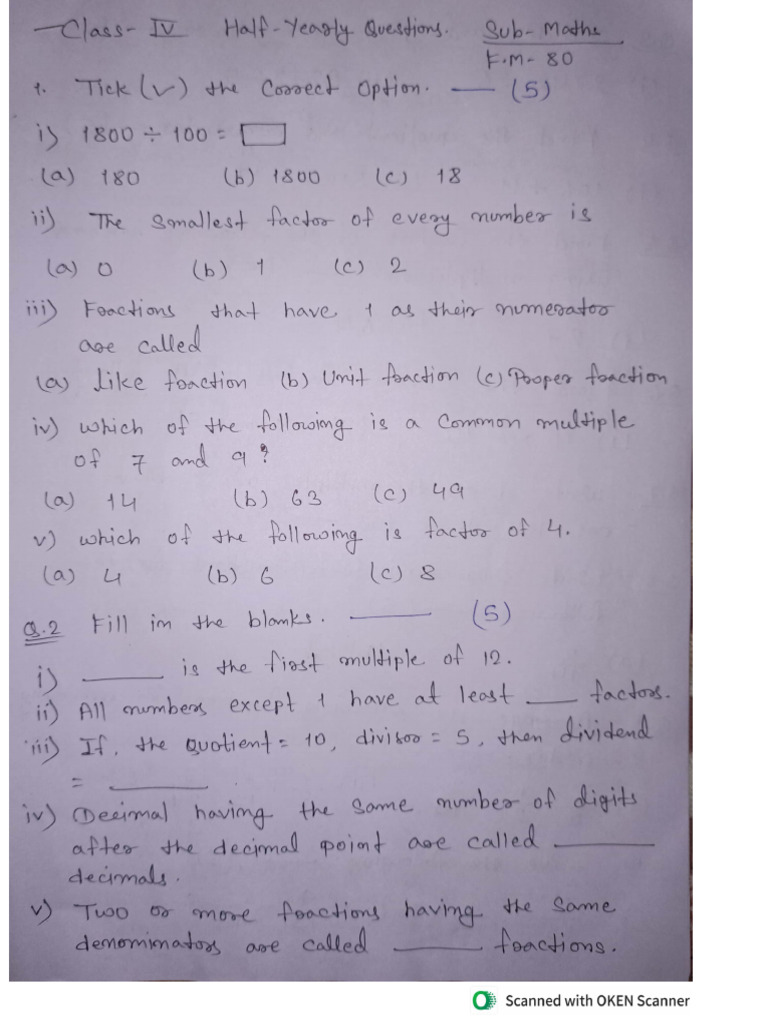 Class- IV Half-Yearly Questions. Sub- Maths
F.M- 80
1. Tick (✓) the Correct Option. — (5)
i) 1800 ÷ 100 = □
(a) 180 (b) 1800 (c) 18
ii) The Smallest factor of every number is
(a) 0 (b) 1 (c) 2
iii) Fractions that have 1 as their numerator
are called
(a) like fraction (b) Unit fraction (c) Proper fraction
iv) which of the following is a Common multiple
of 7 and 9?
(a) 14 (b) 63 (c) 49
v) which of the following is factor of 4.
(a) 4 (b) 6 (c) 8
Q.2 Fill in the blanks. — (5)
i) ______ is the first multiple of 12.
ii) All numbers except 1 have at least ___ factors.
iii) If, the Quotient = 10, divisor = 5, then dividend
= ______
iv) Decimal having the same number of digits
after the decimal point are called ______
decimals.
v) Two or more fractions having the same
denominators are called ______ fractions.
Scanned with OKEN Scanner